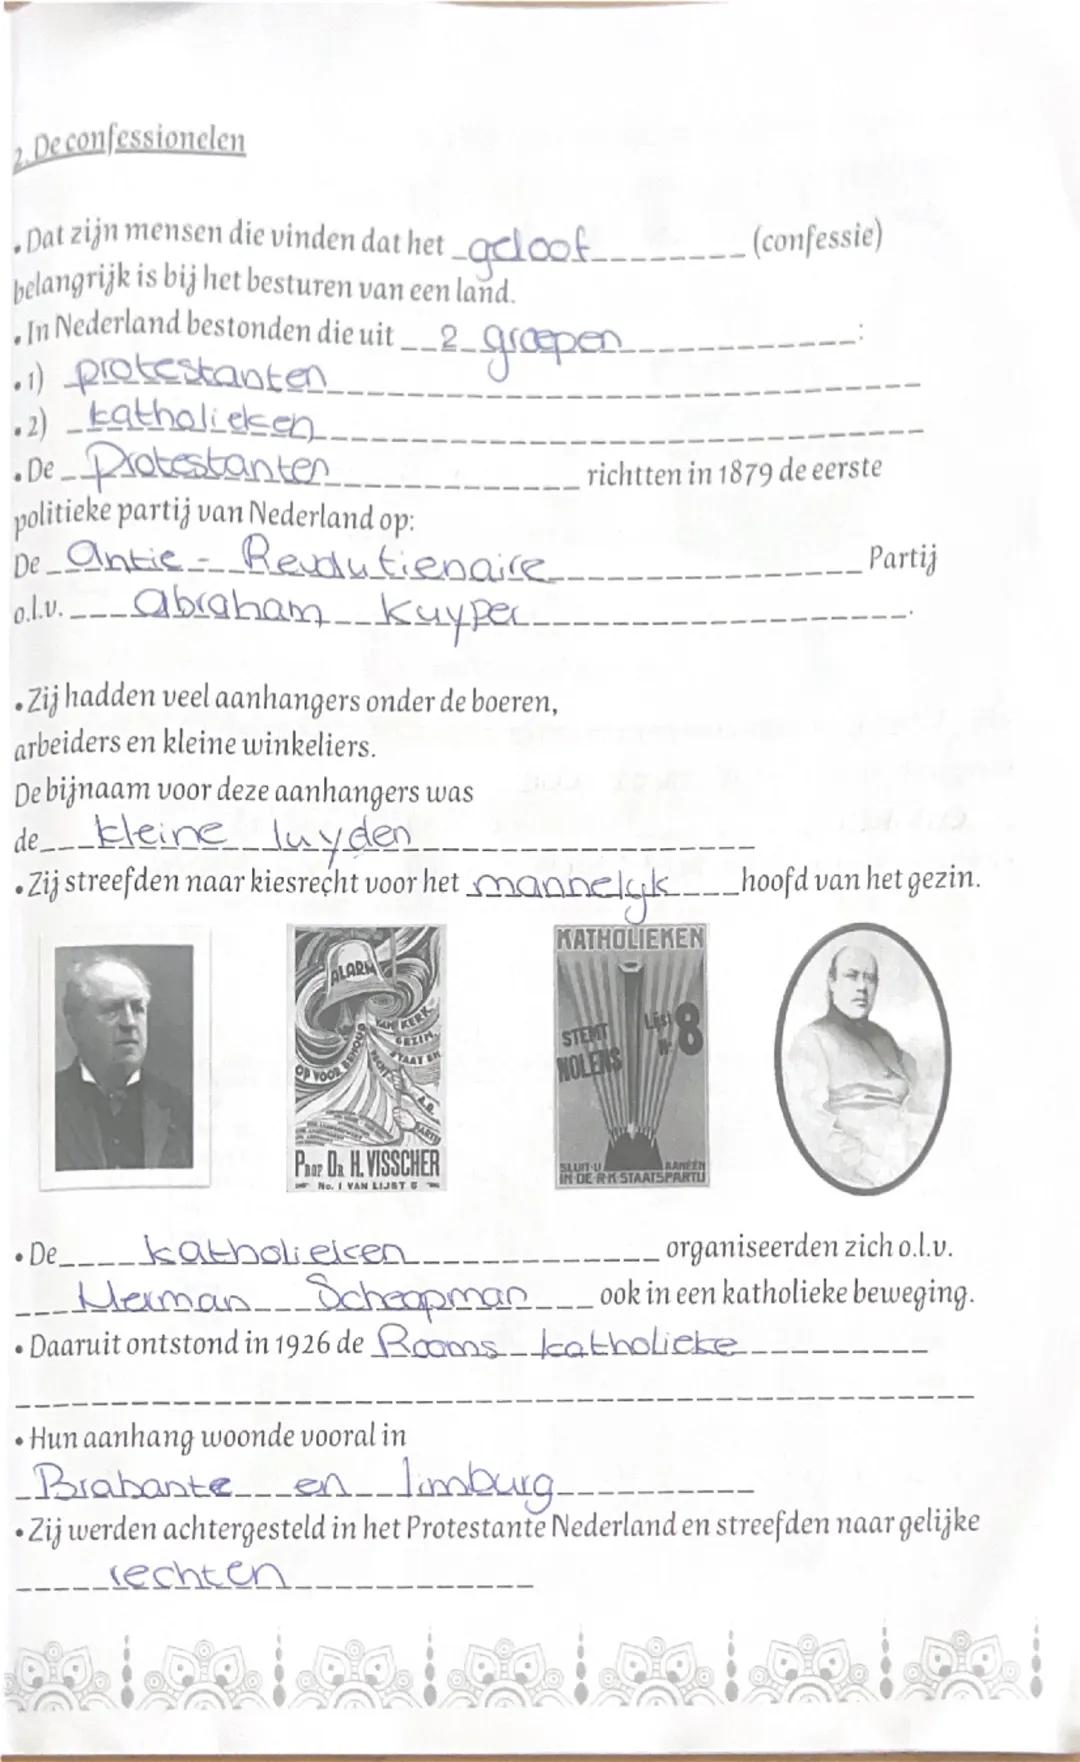 2. De confessionelen
• Dat zijn mensen die vinden dat het geloof (confessie)
belangrijk is bij het besturen van een land.
• In Nederland bestonden die uit 2 groepen :
• 1) protestanten
• 2) katholieken
• De Protestanten richtten in 1879 de eerste
politieke partij van Nederland op:
De Antie - Revolutienaire Partij
o.l.v. Abraham Kuyper.
• Zij hadden veel aanhangers onder de boeren,
arbeiders en kleine winkeliers.
De bijnaam voor deze aanhangers was
de kleine luyden
• Zij streefden naar kiesrecht voor het mannelyk hoofd van het gezin.
ALARM
VAN KERK
GEZIN
STAAT EN
OP VOOR BEHOUD
A.R.
PARTIJ
PROF DR H. VISSCHER
No. 1 VAN LIJST 6
KATHOLIEKEN
STEMT Lijst
NOLENS Nr. 8
SLUIT U AANEEN
IN DE R.K STAATSPARTIJ
• De katholieken organiseerden zich o.l.v.
Herman Schaapman ook in een katholieke beweging.
• Daaruit ontstond in 1926 de Rooms katholieke
• Hun aanhang woonde vooral in
Brabante en limburg
• Zij werden achtergesteld in het Protestante Nederland en streefden naar gelijke
rechten